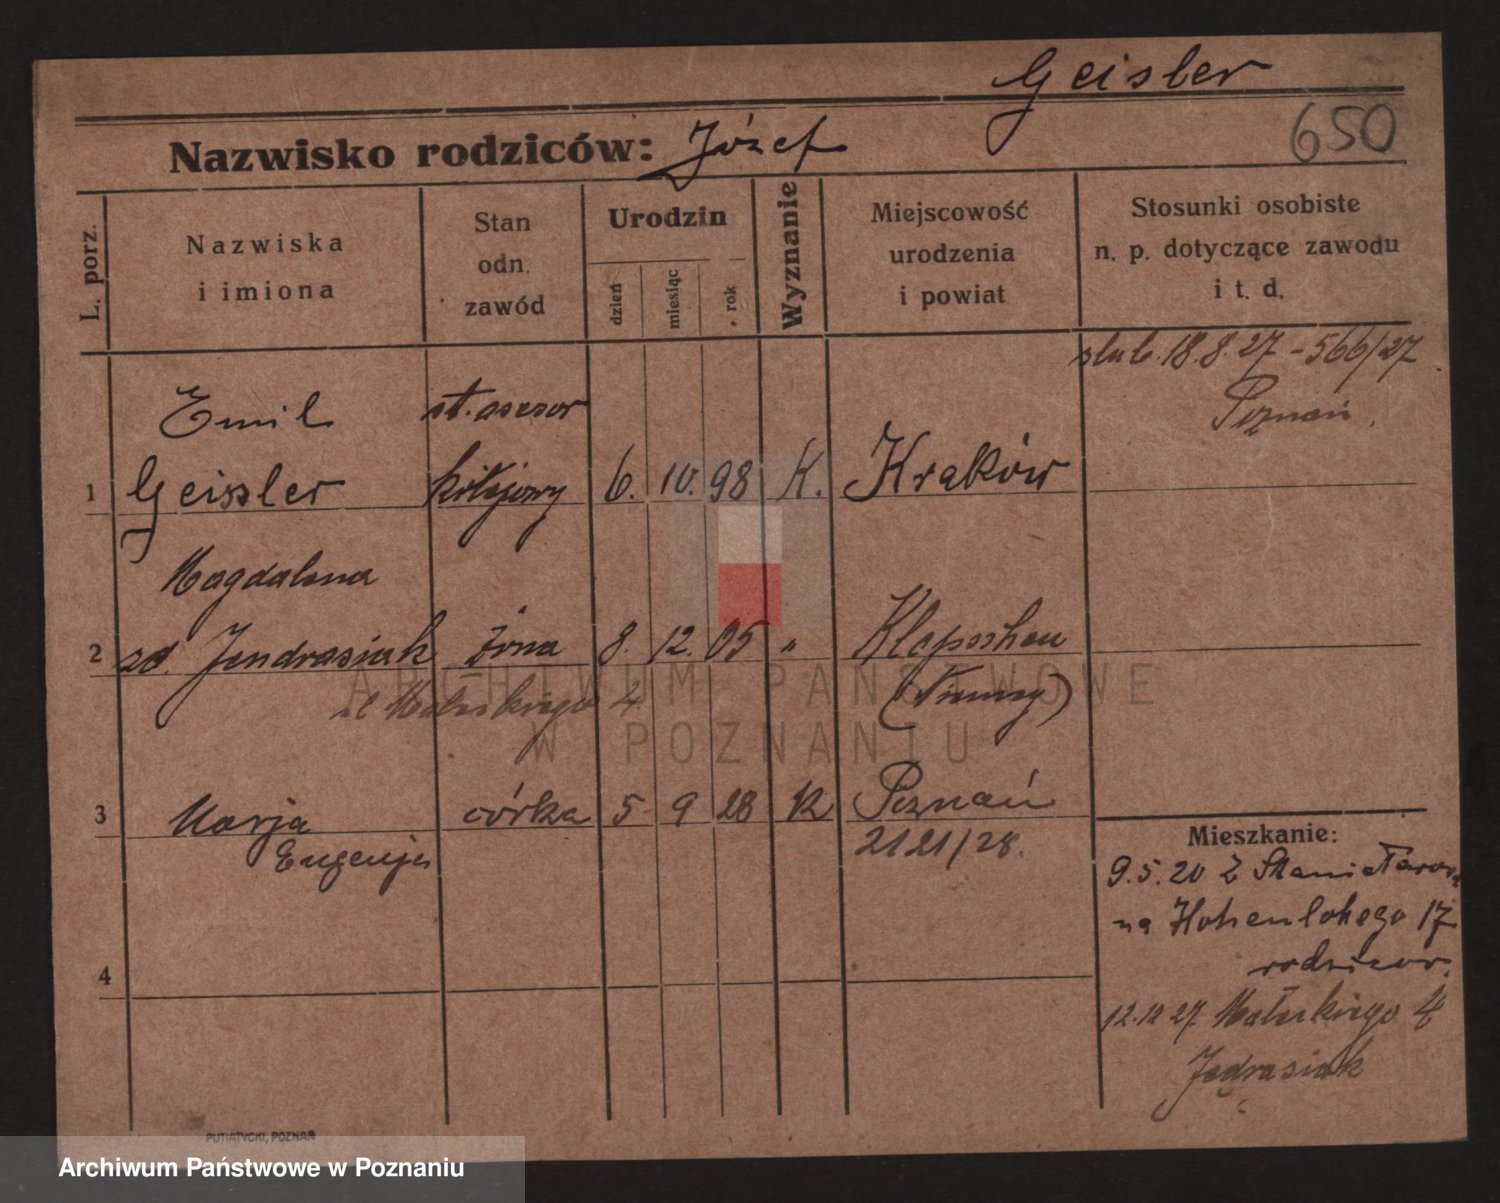 Geisler
650
Nazwisko rodziców: Józef
L. porz.
Nazwiska
i imiona
Stan
odn.
zawód
Urodzin
dzień
miesiąc
rok
Wyznanie
Miejscowość
urodzenia
i powiat
Stosunki osobiste
n. p. dotyczące zawodu
i t. d.
slub. 18.8.27 - 566/27
Poznań.
Emil st. asesor
1 Geissler kolejowy 6. 10. 98 K. Kraków
Magdalena
2 zd. Jendrasiak żona 8. 12. 05 " Klopschen
(Niemcy)
ul Małeckiego 4
3 Marja córka 5 9 28 K Poznań
Eugenja 2121/28.
4
Mieszkanie:
9.5.20 Z
na Hohenlohego 17
rodziców.
12.12 27 Małeckiego 4
Jędrasiak
ARCHIWUM PAŃSTWOWE
W POZNANIU
PUTIATYCKI, POZNAŃ
Archiwum Państwowe w Poznaniu